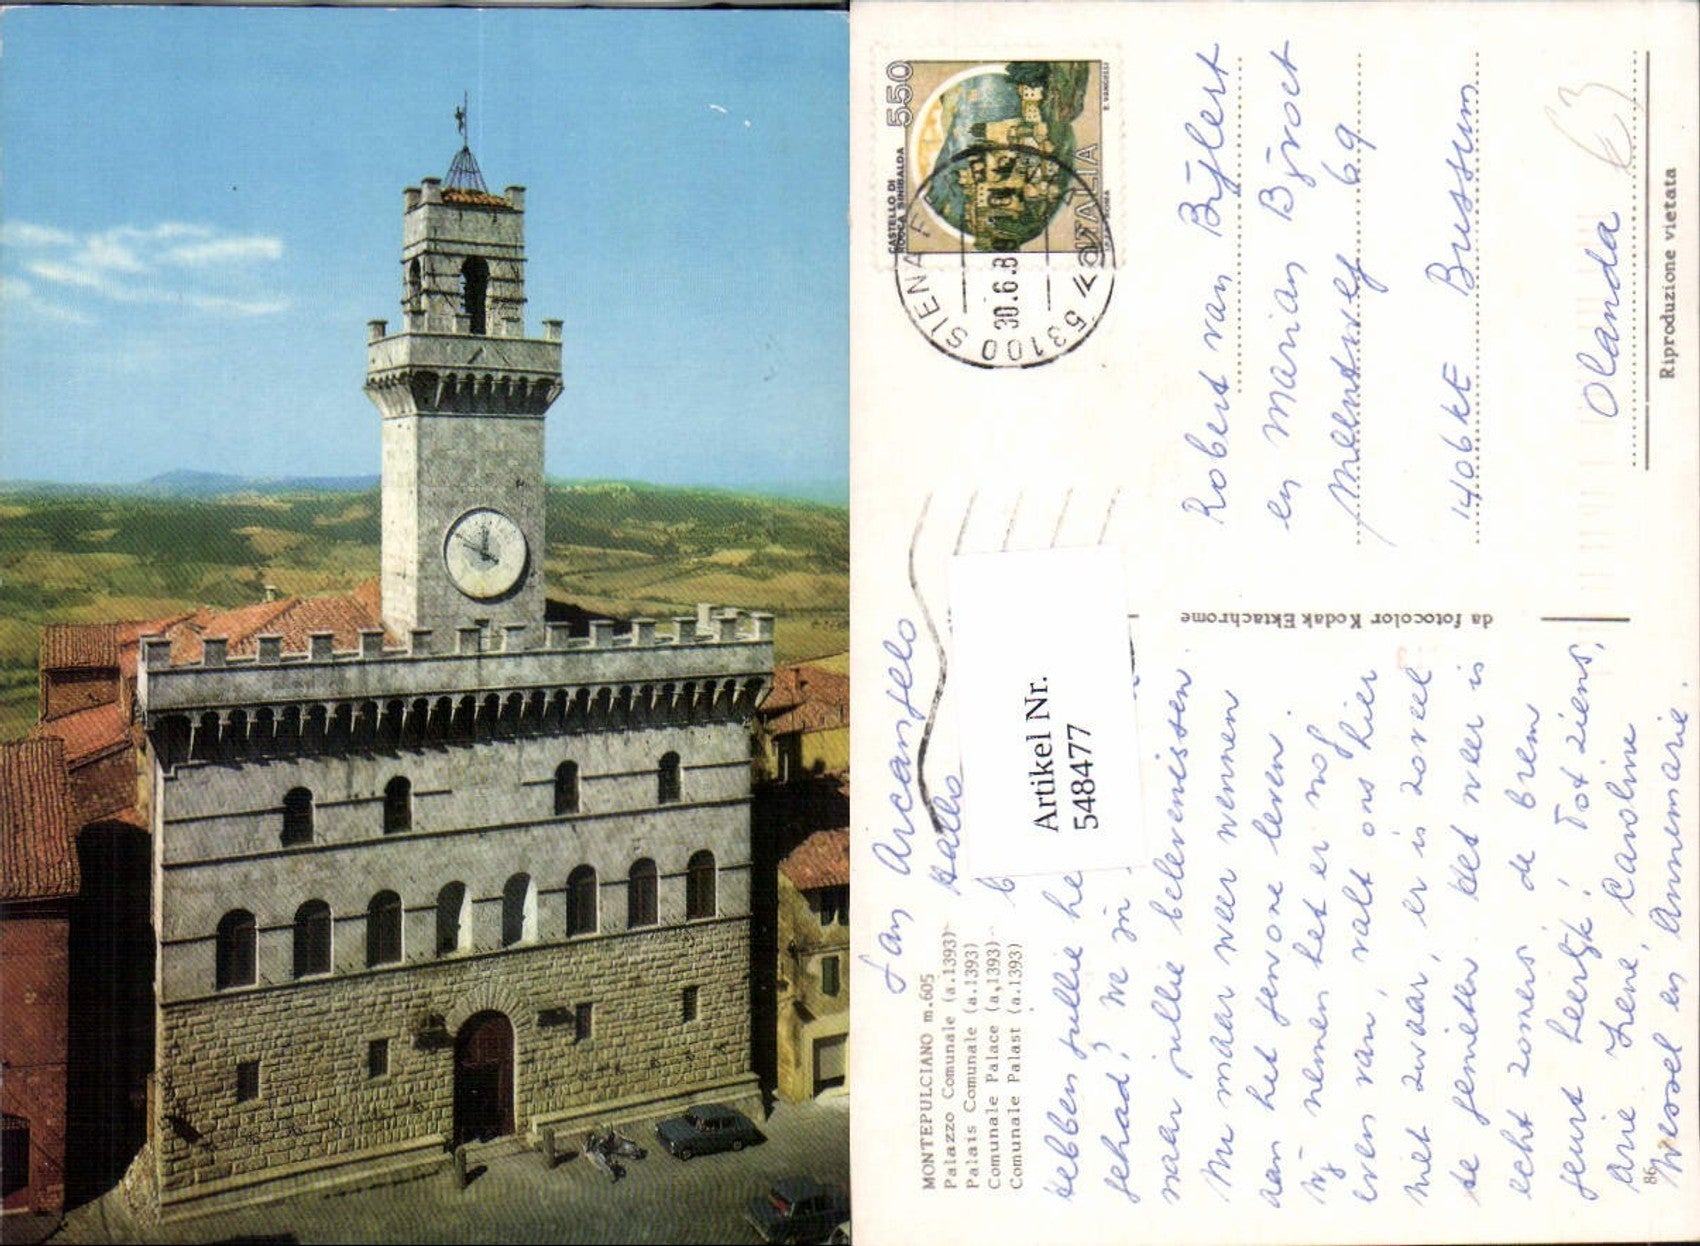 MONTEPULCIANO m.605
Palazzo Comunale (a.1393)
Palais Comunale (a.1393)
Comunale Palace (a,1393)
Comunale Palast (a.1393)
San Arcangelo
Hallo
hebben jullie he
gehad? We zijn
naar jullie belevenissen.
Nu maar weer wennen
aan het gewone leven.
Wij nemen het er nog
even van, valt ons hier
niet zwaar, er is zoveel
te genieten. Het weer is
echt zomers, de brem
geurt heerlijk! Tot ziens,
Arie Lene, Caroline
Wessel en Annemarie.
86
Artikel Nr.
548477
da fotocolor Kodak Ektachrome
550
CASTELLO DI
ROCCA SINIBALDA
ITALIA
E. VANGELLI
ROMA
53100 SIENA
30.6.8
Robert van Bijlert
en Marian Bijvoet
Meentweg 69
1406KE Bussum
Olanda
Riproduzione vietata